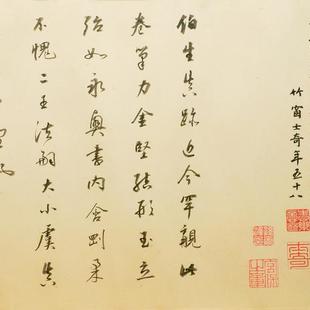 竹窗士奇年五十八
伯生真跡近今罕覯此
卷筆力金堅結形玉立
殆如永興書內含剛柔
不愧二王法嗣大小虞真